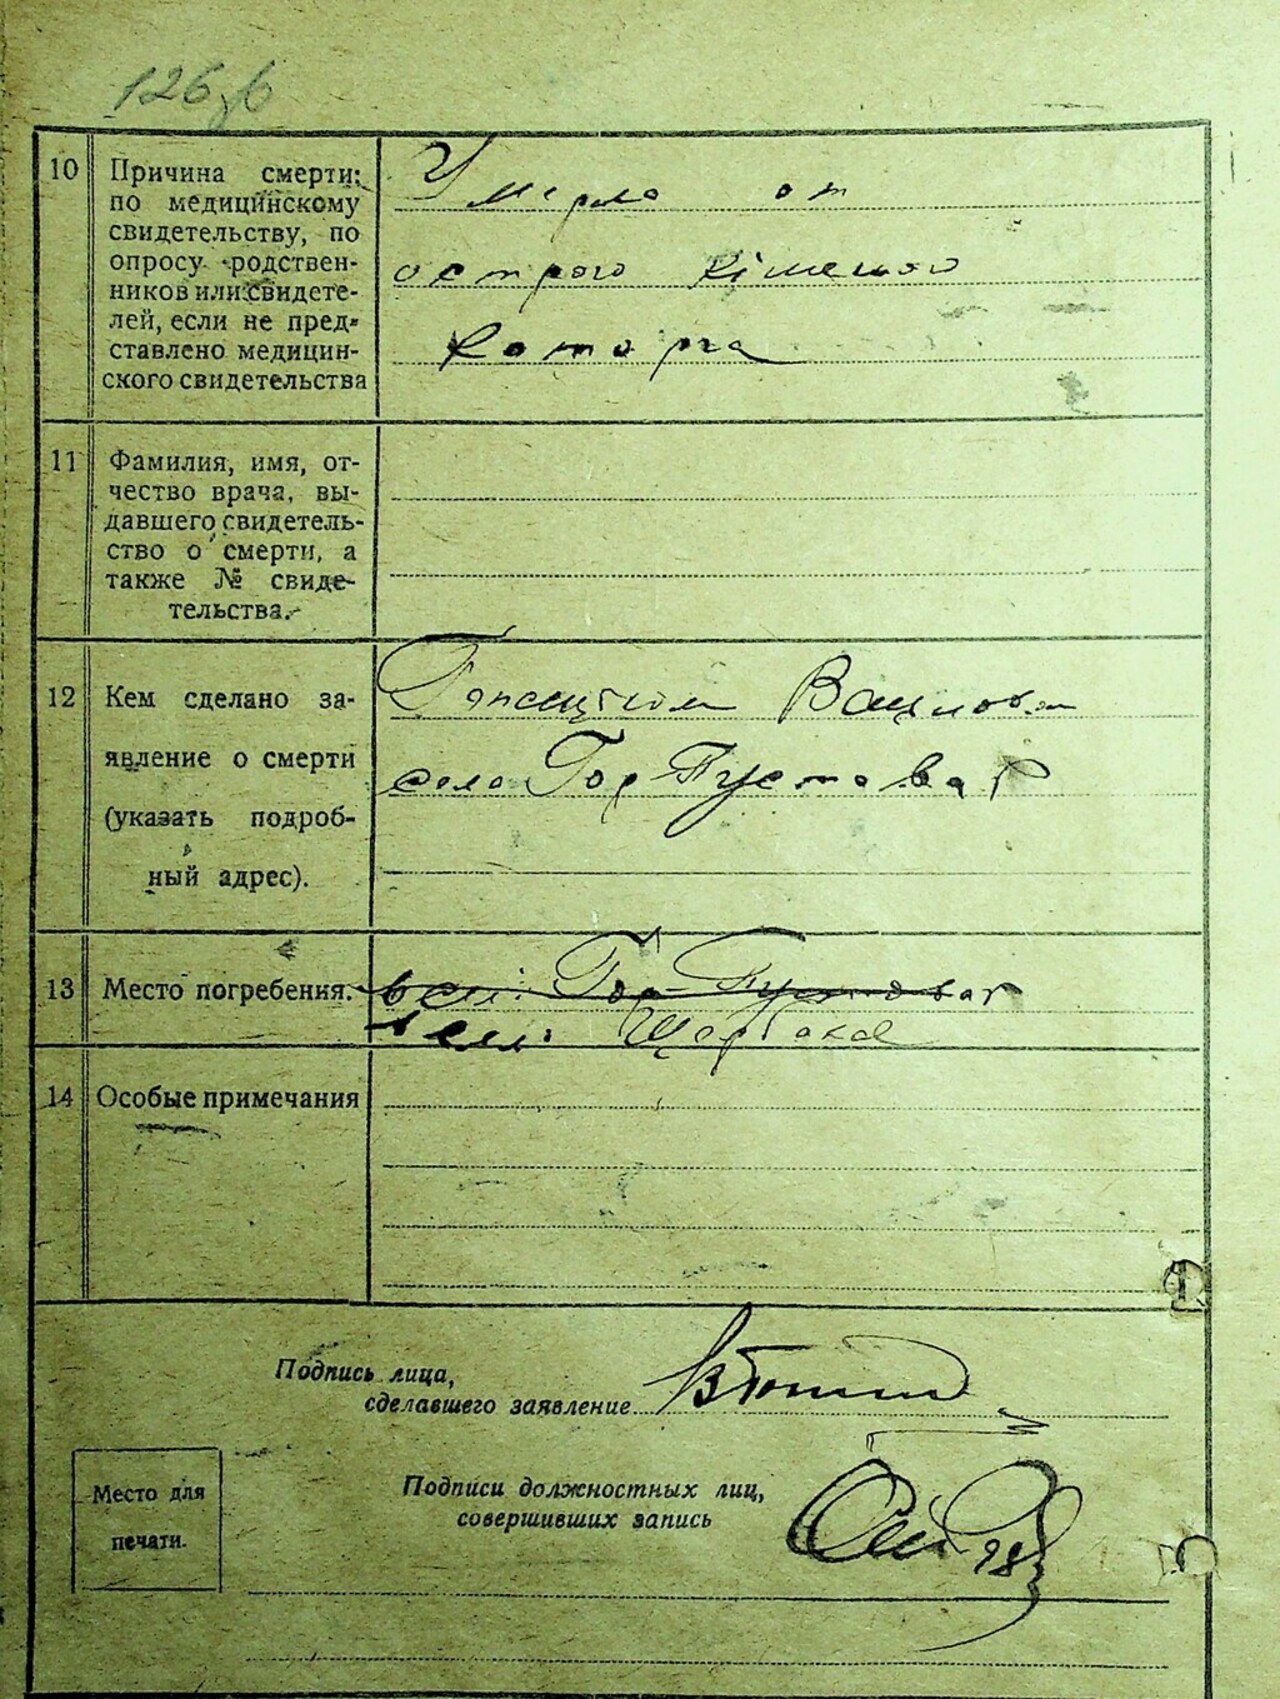 126зв
10 Причина смерти:
по медицинскому
свидетельству, по
опросу родствен-
ников или свидете-
лей, если не пред-
ставлено медицин-
ского свидетельства
Умерла от
острого
11 Фамилия, имя, от-
чество врача, вы-
давшего свидетель-
ство о смерти, а
также № свиде-
тельства.
12 Кем сделано за-
явление о смерти
(указать подроб-
ный адрес).
село Гор-Пустоваг
13 Место погребения.
в селі Гор-Пустоваг
в селі
14 Особые примечания
Подпись лица,
сделавшего заявление
Место для
печати.
Подписи должностных лиц,
совершивших запись